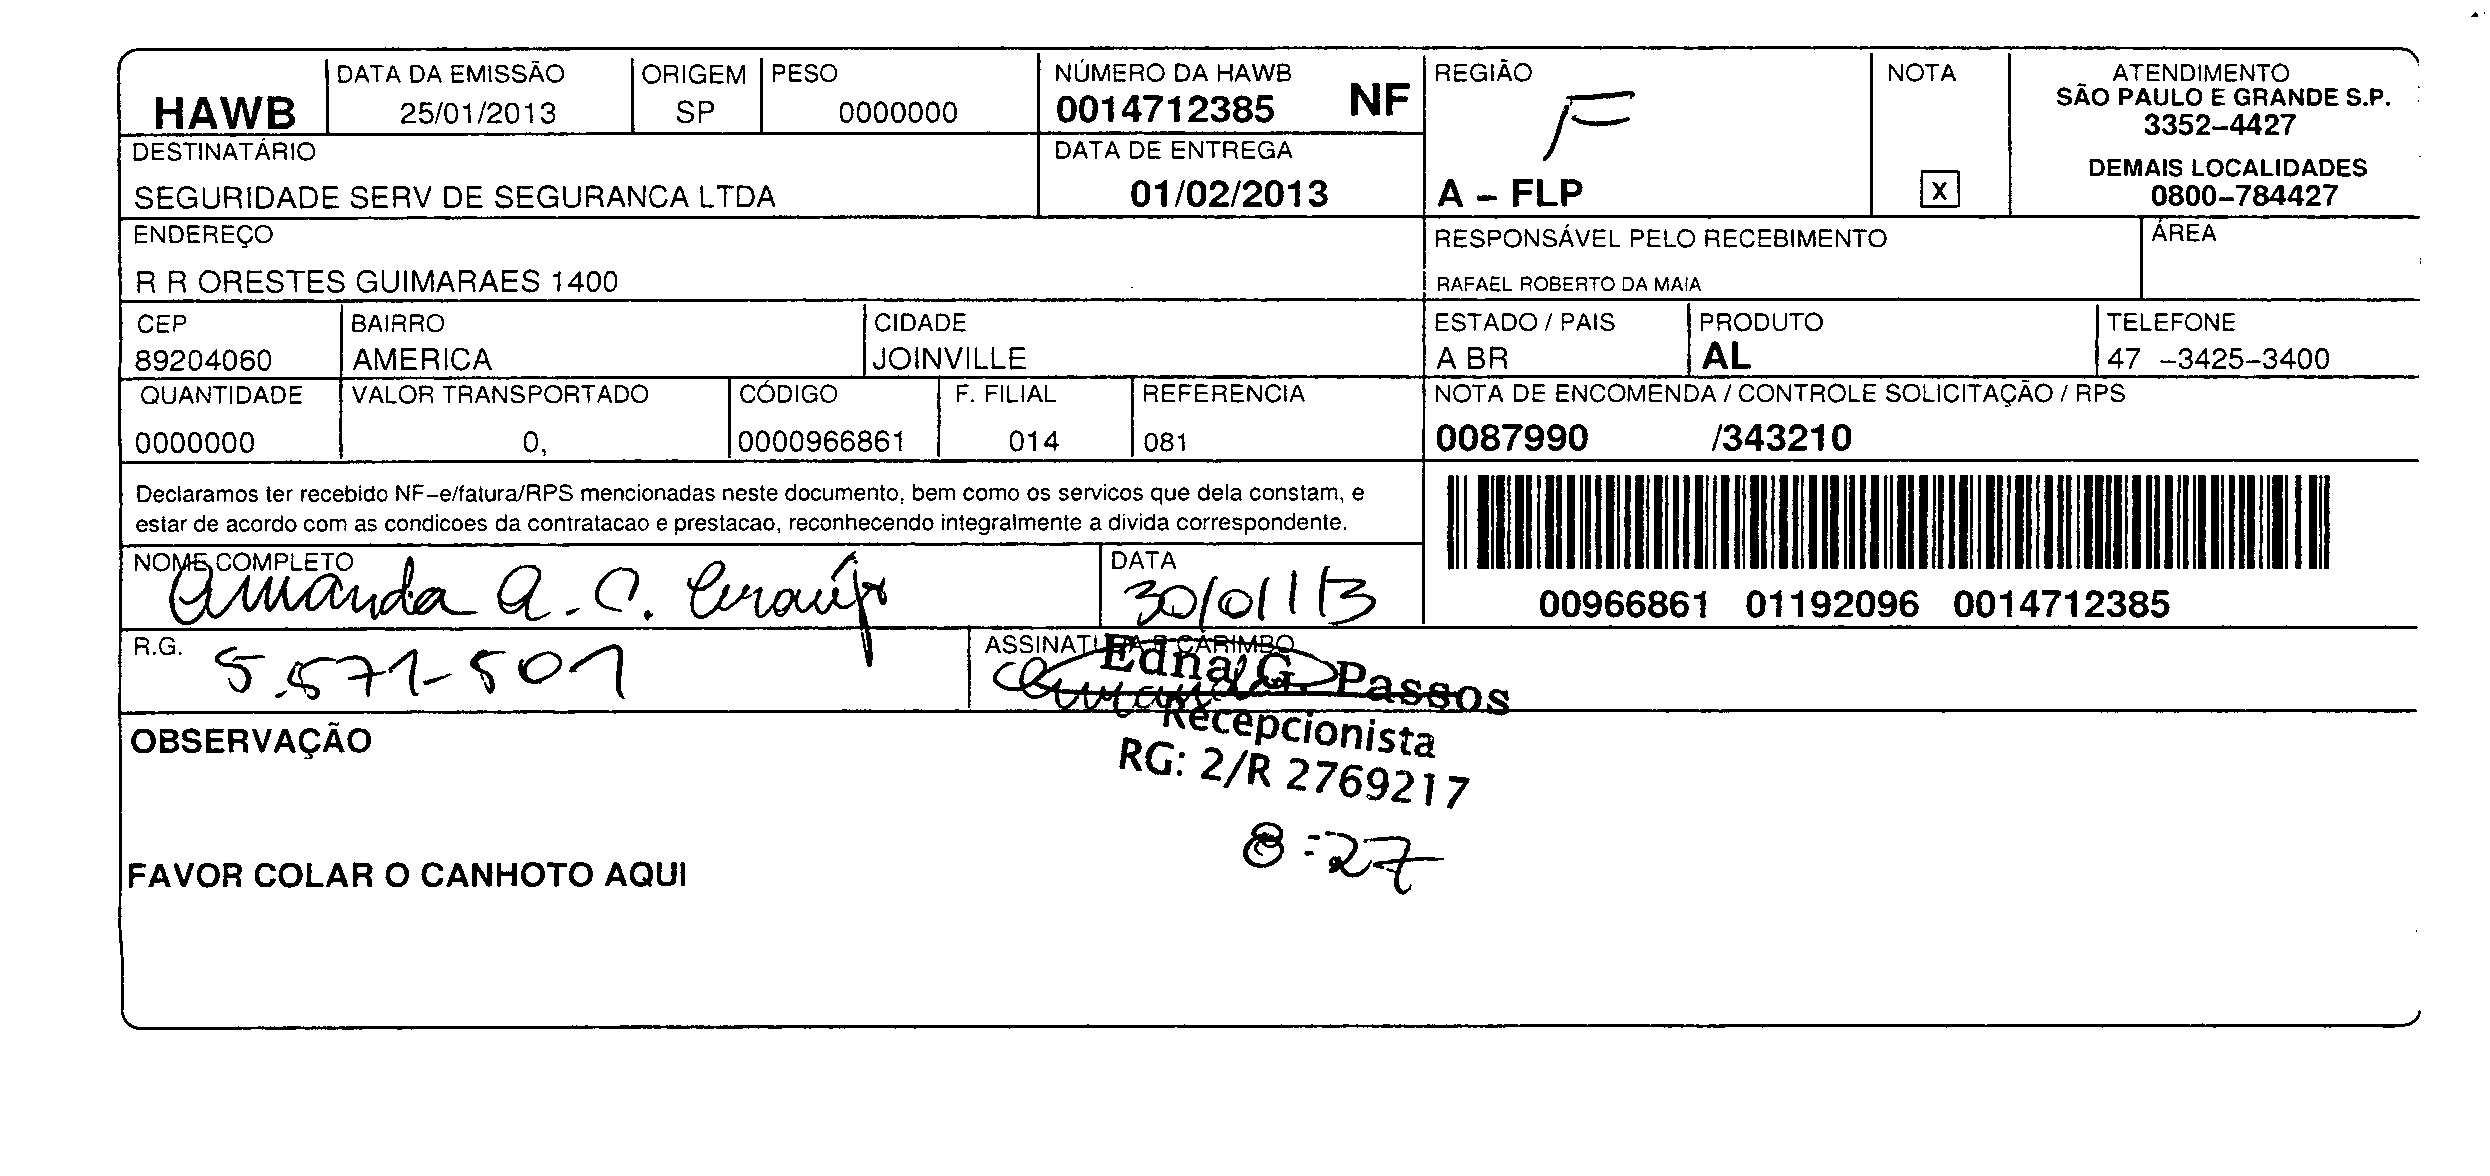 HAWB
DATA DA EMISSÃO
25/01/2013
ORIGEM
SP
PESO
0000000
NÚMERO DA HAWB
0014712385 NF
REGIÃO
F
A – FLP
NOTA
X
ATENDIMENTO
SÃO PAULO E GRANDE S.P.
3352–4427
DEMAIS LOCALIDADES
0800–784427
DESTINATÁRIO
SEGURIDADE SERV DE SEGURANCA LTDA
DATA DE ENTREGA
01/02/2013
ENDEREÇO
R R ORESTES GUIMARAES 1400
RESPONSÁVEL PELO RECEBIMENTO
RAFAEL ROBERTO DA MAIA
ÁREA
CEP
89204060
BAIRRO
AMERICA
CIDADE
JOINVILLE
ESTADO / PAIS
A BR
PRODUTO
AL
TELEFONE
47 –3425–3400
QUANTIDADE
0000000
VALOR TRANSPORTADO
0,
CÓDIGO
0000966861
F. FILIAL
014
REFERENCIA
081
NOTA DE ENCOMENDA / CONTROLE SOLICITAÇÃO / RPS
0087990 /343210
Declaramos ter recebido NF–e/fatura/RPS mencionadas neste documento, bem como os servicos que dela constam, e
estar de acordo com as condicoes da contratacao e prestacao, reconhecendo integralmente a divida correspondente.
00966861 01192096 0014712385
NOME COMPLETO
Amanda A. C. Araújo
DATA
30/01/13
R.G.
5.571-501
ASSINATURA E CARIMBO
Amanda
Edna G. Passos
Recepcionista
RG: 2/R 2769217
8:27
OBSERVAÇÃO
FAVOR COLAR O CANHOTO AQUI